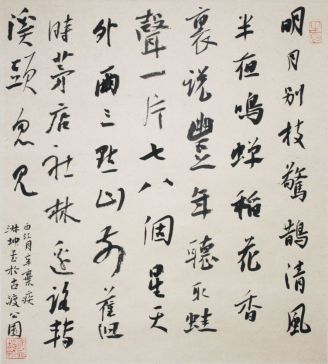 明月别枝驚鵲清風
半夜鳴蟬稻花香
裏说豐年聽取蛙
聲一片七八個星天
外兩三點山前舊
時茅店社林邊路轉
溪頭忽見
江月辛棄疾
坤書於古渡公園